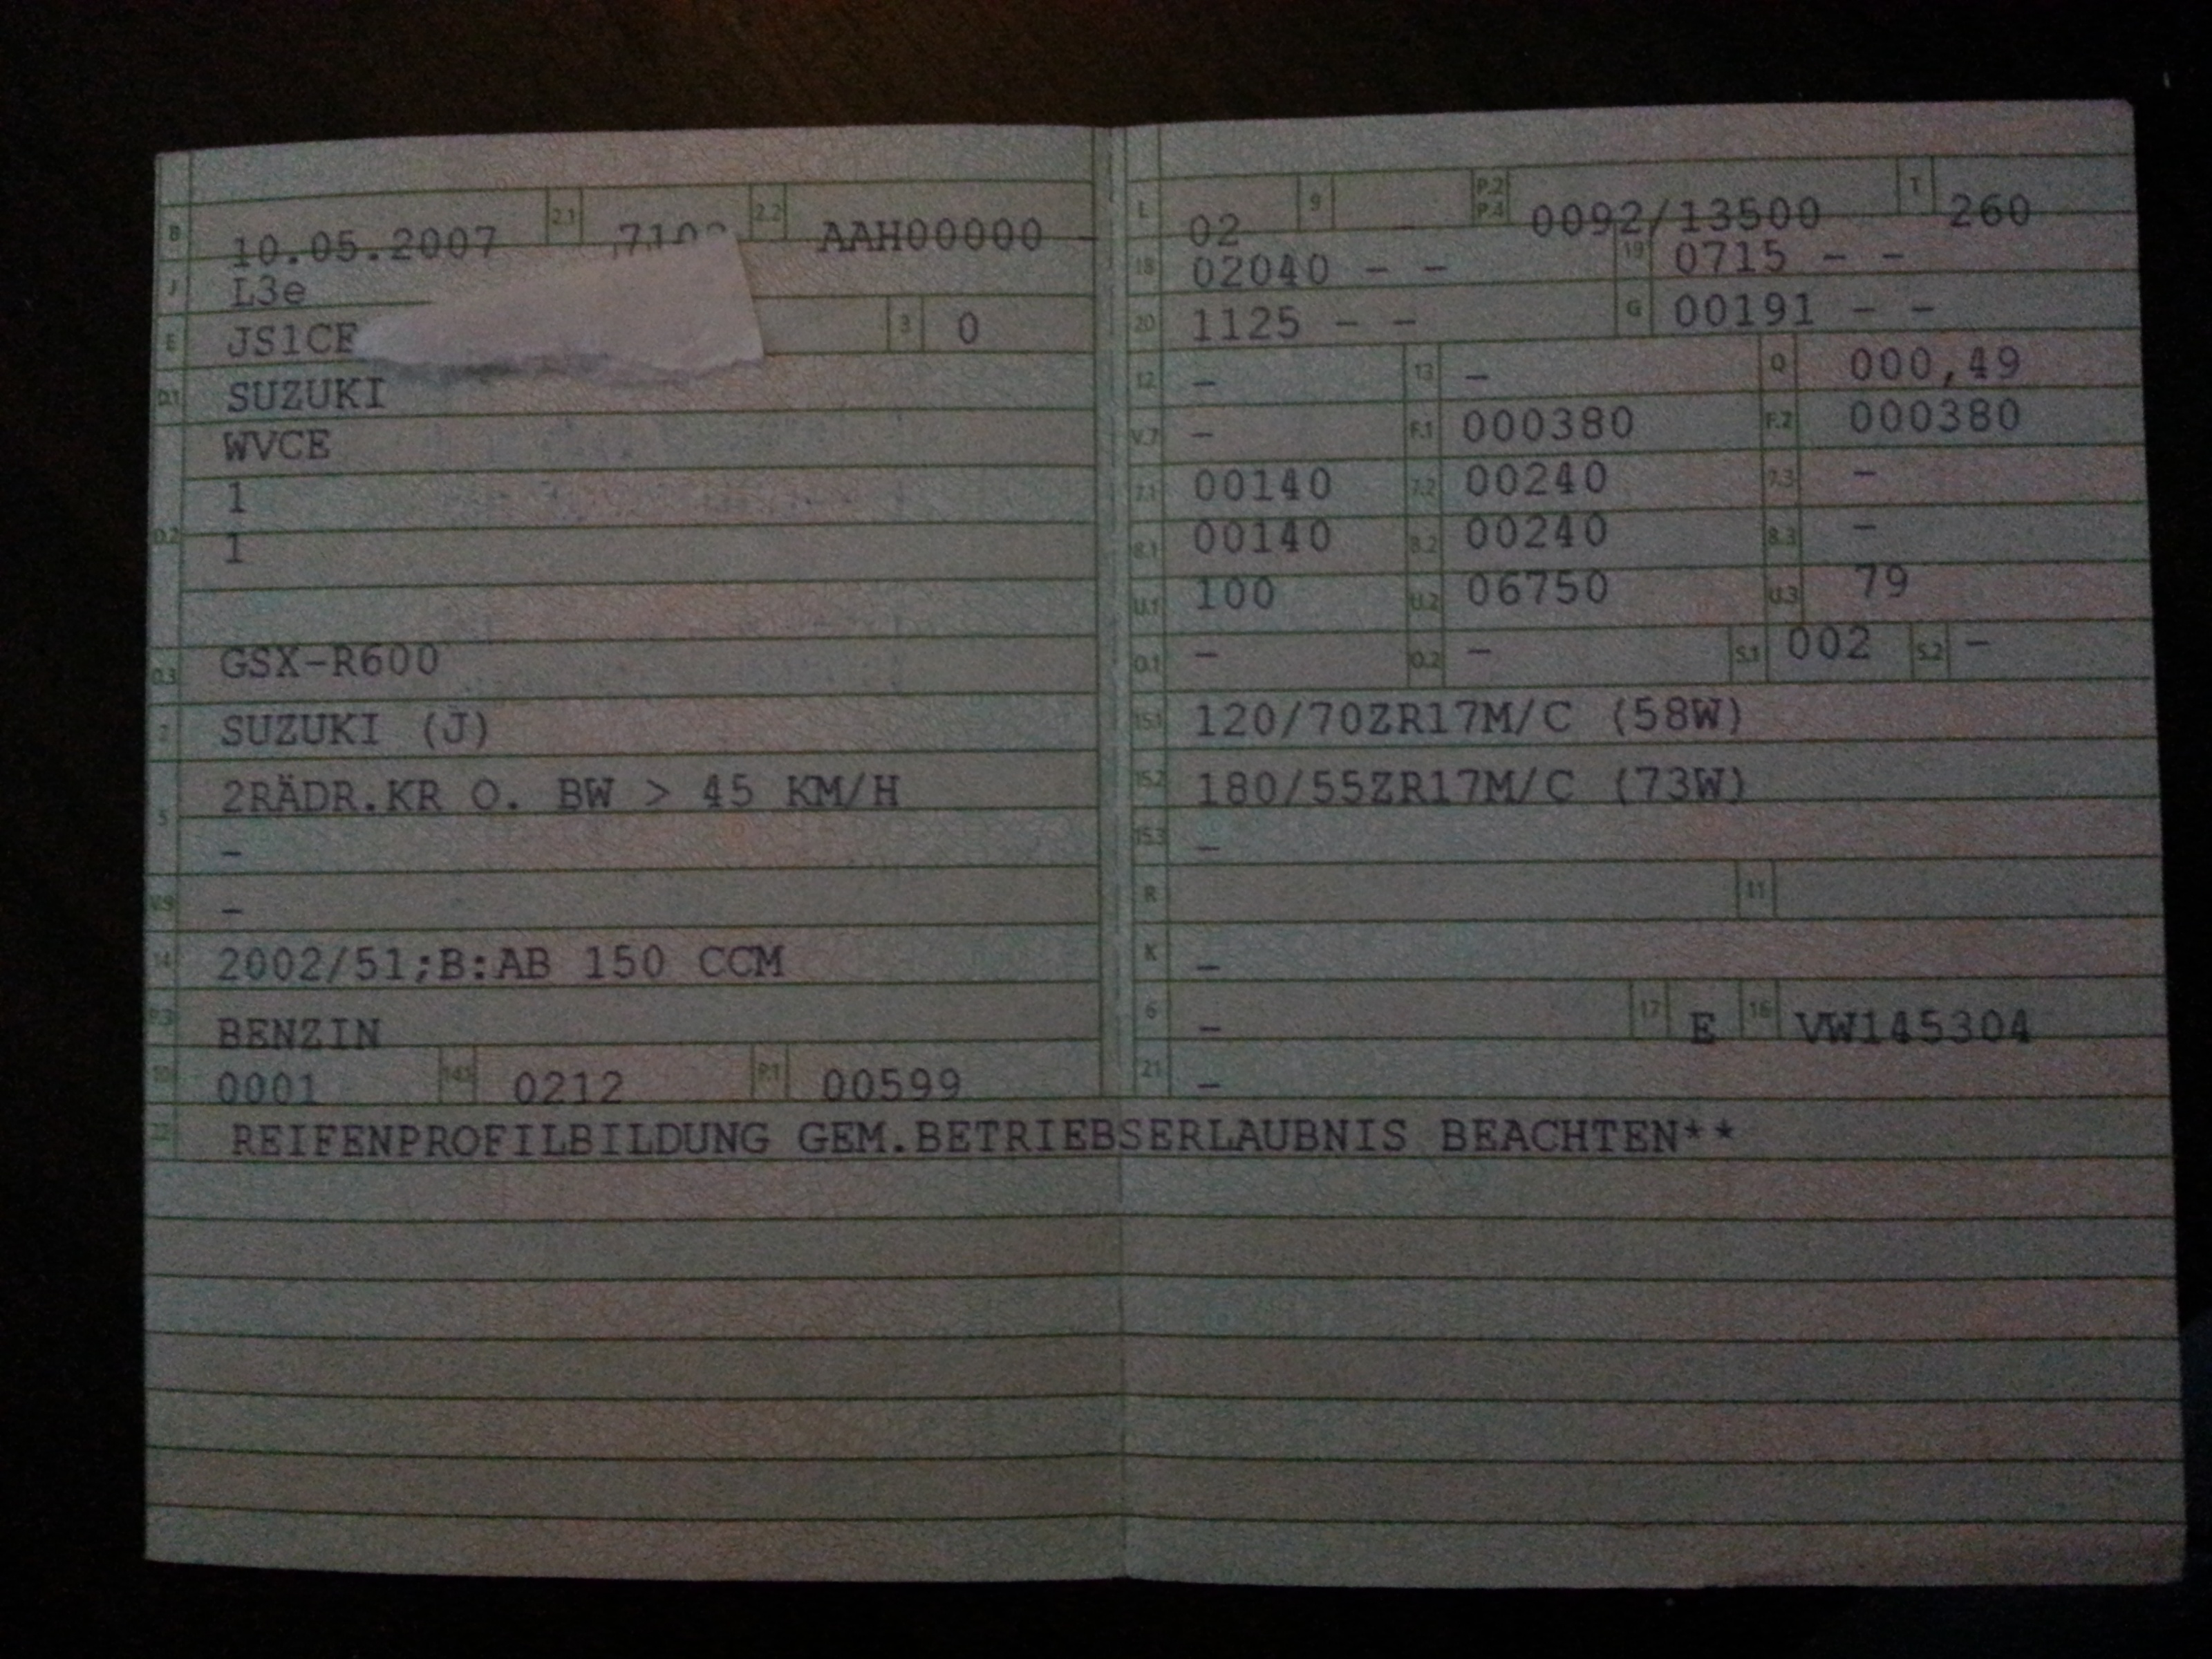 B 10.05.2007 2.1 2.2 AAH00000 -
J L3e
E JS1CE 3 0
D.1 SUZUKI
WVCE
1
D.2 1
D.3 GSX-R600
2 SUZUKI (J)
5 2RÄDR.KR O. BW > 45 KM/H
-
V.9 -
14 2002/51;B:AB 150 CCM
P.3 BENZIN
10 0001 14.1 0212 P.1 00599
L 02 9 - P.2 P.4 0092/13500 T 260
18 02040 - - 19 0715 - -
20 1125 - - G 00191 - -
12 - 13 - Q 000,49
V.7 - F.1 000380 F.2 000380
7.1 00140 7.2 00240 7.3 -
8.1 00140 8.2 00240 8.3 -
U.1 100 U.2 06750 U.3 79
O.1 - O.2 - S.1 002 S.2 -
15.1 120/70ZR17M/C (58W)
15.2 180/55ZR17M/C (73W)
15.3 -
R 11
K -
6 - 17 E 16 VW145304
21 -
22 REIFENPROFILBILDUNG GEM.BETRIEBSERLAUBNIS BEACHTEN**